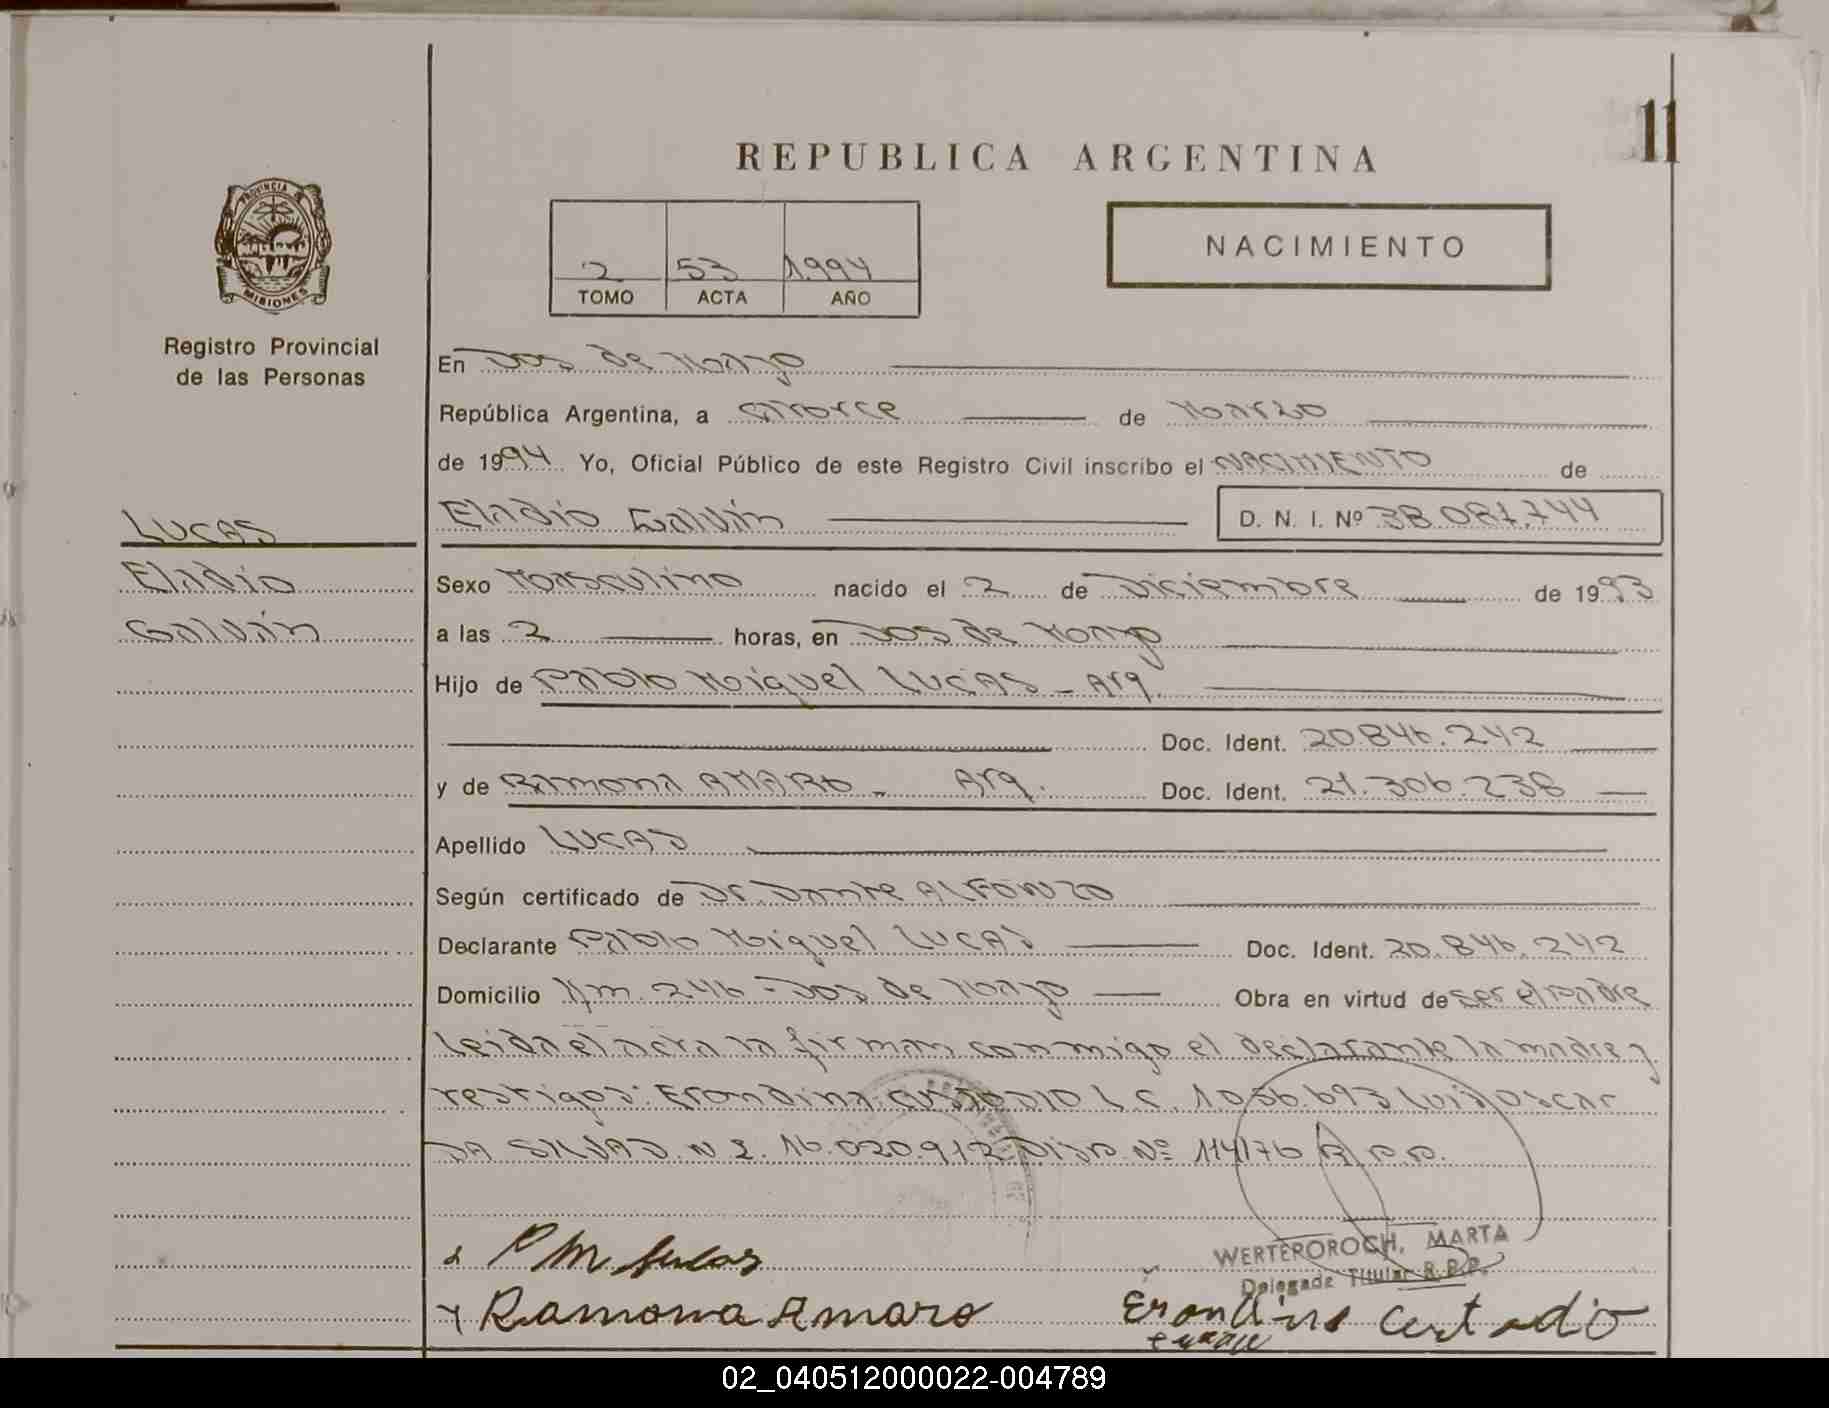 11
REPUBLICA ARGENTINA
PROVINCIA DE
MISIONES
Registro Provincial
de las Personas
2 53 1.994
TOMO ACTA AÑO
NACIMIENTO
En Dos de Mayo
República Argentina, a catorce de Marzo
de 1994 Yo, Oficial Público de este Registro Civil inscribo el NACIMIENTO de
Eladio Galván D. N. I. Nº 38.087.744
LUCAS
Eladio
Galván
Sexo Masculino nacido el 2 de Diciembre de 1993
a las 2 horas, en Dos de Mayo
Hijo de Pablo Miguel LUCAS - Arg.
Doc. Ident. 20.846.242
y de Ramona AMARO - Arg. Doc. Ident. 21.306.238
Apellido LUCAS
Según certificado de Dr. Dante ALFONZO
Declarante Pablo Miguel LUCAS Doc. Ident. 20.846.242
Domicilio Km. 246 - Dos de Mayo Obra en virtud de ser el padre
Leida el acta la firman conmigo el declarante la madre y
testigos: Erondina L.C. 1.056.693 Luis Oscar
DA SILVA D.N.I. 16.020.912 Disp. Nº 114/76 R.P.P.
P M Lucas
WERTEROROCH, MARTA
Delegada Titular R.P.P.
Ramona Amaro Erondina
02_040512000022-004789